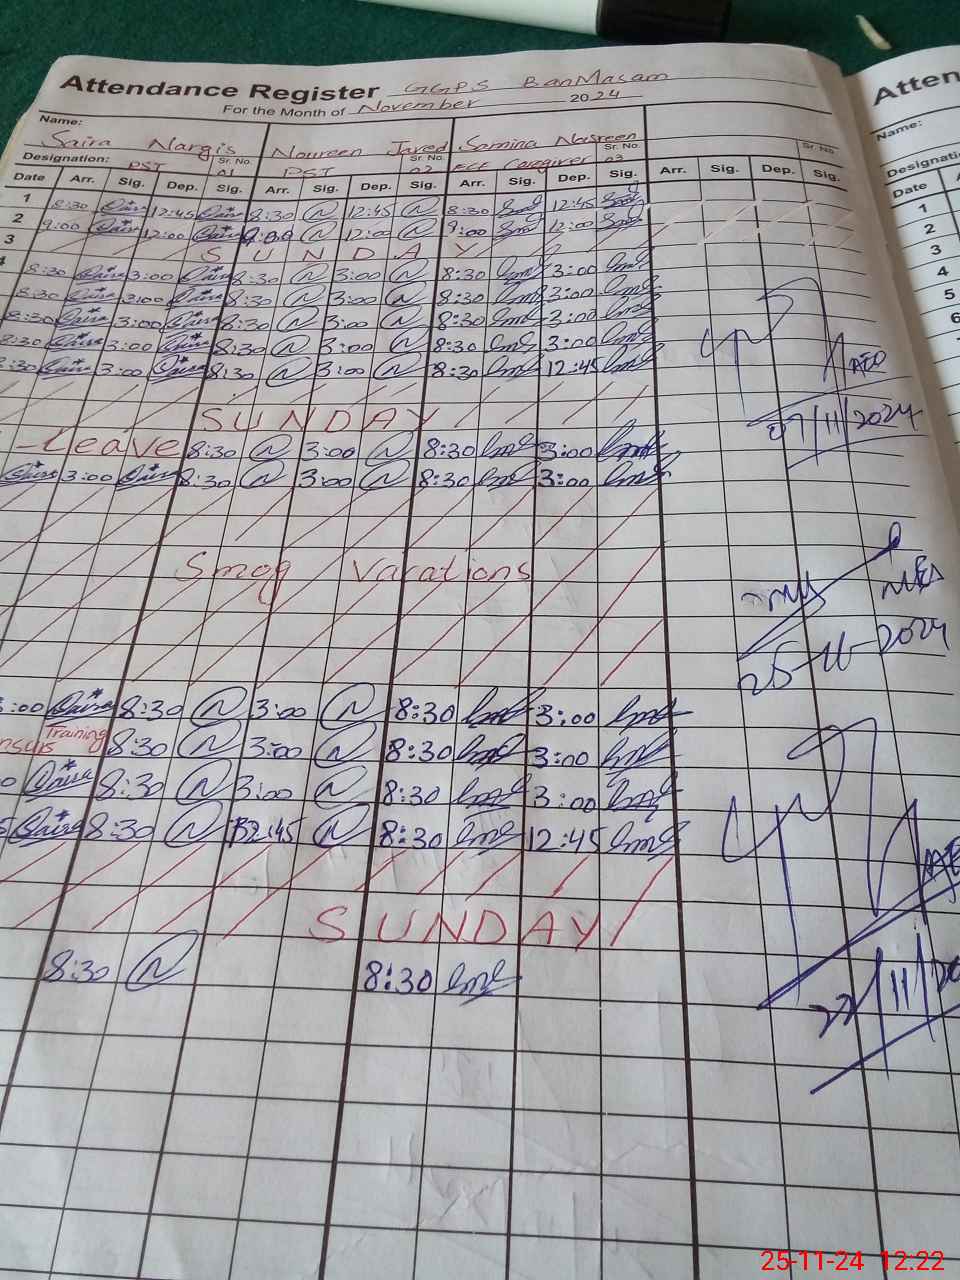 Attendance Register GGPS BanMasam
Atten
For the Month of November 2024
Name: Name:
Saira Nargis Noureen Javed Samina Nasreen
Designation: PST Sr. No. 01 PST Sr. No. 02 ECE Caregiver Sr. No. 03 Sr. No. Designatio
Date Arr. Sig. Dep. Sig. Arr. Sig. Dep. Sig. Arr. Sig. Dep. Sig. Arr. Sig. Dep. Sig. Date
1 8:30 Saira 12:45 Saira 8:30 N 12:45 N 8:30 12:45 1
2 9:00 Saira 12:00 Saira 9:00 N 12:00 N 9:00 12:00 2
3 SUNDAY 3
4 8:30 Saira 3:00 Saira 8:30 N 3:00 N 8:30 3:00 4
8:30 Saira 3:00 Saira 8:30 N 3:00 N 8:30 3:00 5
8:30 Saira 3:00 Saira 8:30 N 3:00 N 8:30 3:00 6
8:30 Saira 3:00 Saira 8:30 N 3:00 N 8:30 3:00
8:30 Saira 3:00 Saira 8:30 N 3:00 N 8:30 12:45
AEO
07/11/2024
SUNDAY
Leave 8:30 N 3:00 N 8:30 3:00
Saira 3:00 Saira 8:30 N 3:00 N 8:30 3:00
Smog Vacations
25-11-2024
:00 Saira 8:30 N 3:00 N 8:30 3:00
Training 8:30 N 3:00 N 8:30 3:00
0 Saira 8:30 N 3:00 N 8:30 3:00
5 Saira 8:30 N 12:45 N 8:30 12:45
SUNDAY
8:30 N 8:30
22/11/20
25-11-24 12:22